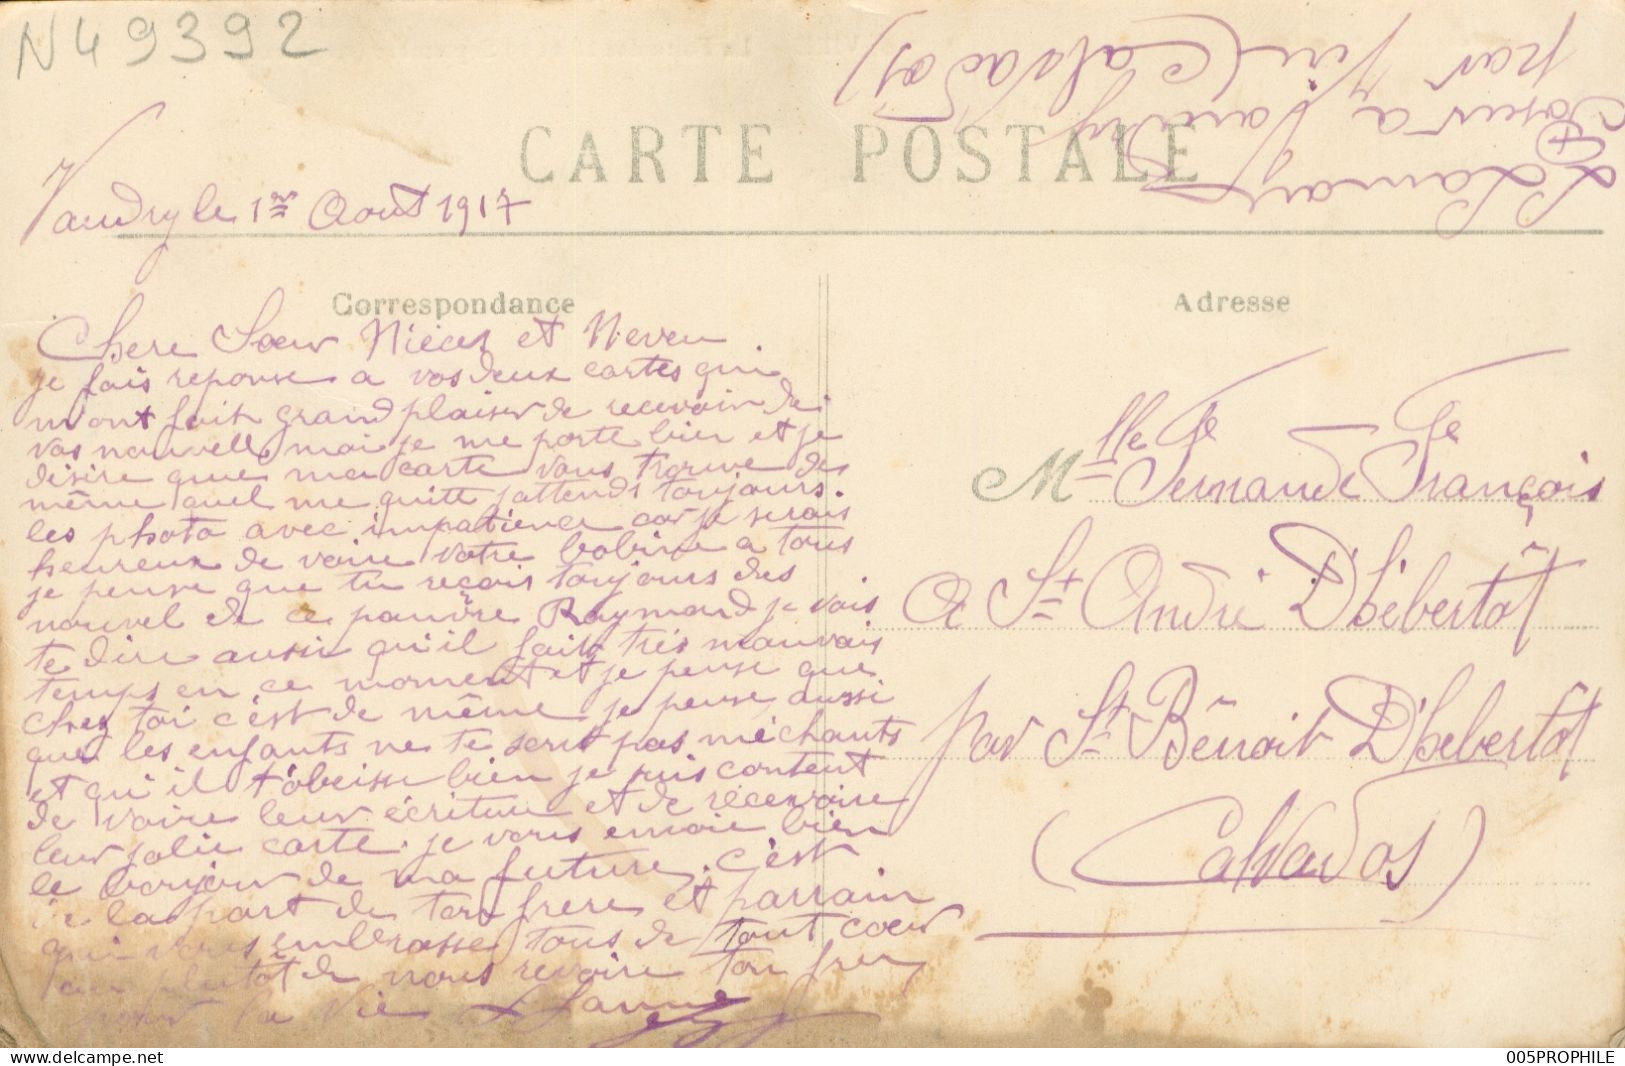 N49392
CARTE POSTALE
par Vire (Calvados)
à Vaudry
Vaudry le 1er Aout 1917
Correspondance
Adresse
Chere Sœur Nièces et Neveu
je fais reponse a vos deux cartes qui
m'ont fait grand plaisir de recevoir de
vos nouvelle moi je me porte bien et je
désire que ma carte vous trouve des
même quel me quitte j'attends toujours
les photo avec impatience car je serais
heureux de voire votre bobine a tous
je pense que tu reçois toujours des
nouvel de ce pauvre Raymond je vais
te dire aussi qu'il fait très mauvais
temps en ce moment et je pense que
chez toi c'est de même je pense aussi
que les enfants ne te sont pas méchants
et qu'il t'obeisse bien je suis content
de voire leur écriture et de recevoire
leur jolie carte. je vous envoie bien
le bonjour de ma future. c'est
de la part de ton frere et parrain
qui vous embrasse tous de tout cœur
au plutôt de nous revoire ton frere
pour la vie
Mlle Fernande François
A St André D'hébertôt
par St Bênoit D'hebertot
(Calvados)
005PROPHILE